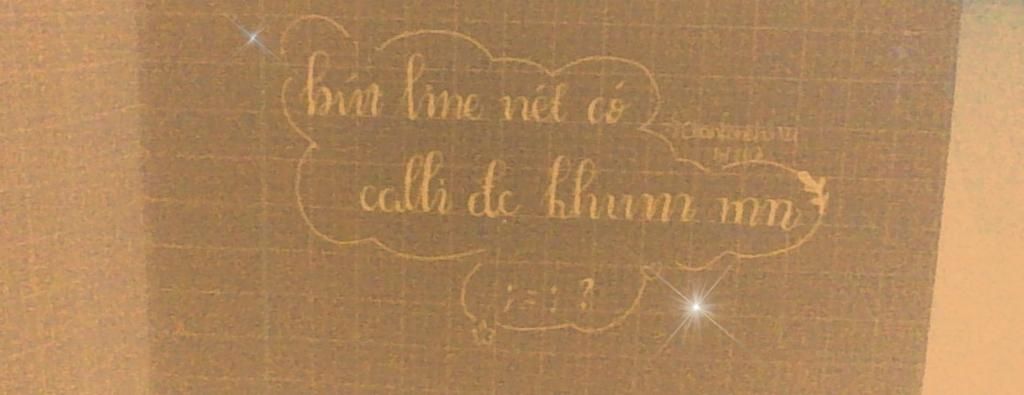 bút line nét có
calli đc khum mn
; = ; ?